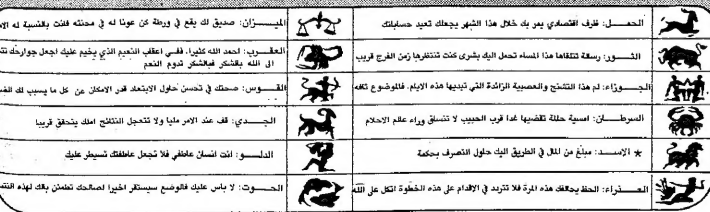 الحمـــل: ظرف اقتصادي يمر بك خلال هذا الشهر يجعلك تعيد حساباتك
الثـــور: رسالة تتلقاها هذا المساء تحمل اليك بشرى كنت تنتظرها زمن الفرج قريب
الجـــوزاء: لم هذا التشنج والعصبية الزائدة التي تبديها هذه الايام. فالموضوع تافه
السرطـــان: امسية حللة تقضيها غدا قرب الحبيب لا تنساق وراء عالم الاحلام
* الاســـد: مبلغ من المال في الطريق اليك حاول التصرف بحكمة
العـــذراء: الحظ يحالفك هذه المرة فلا تتردد في الاقدام على هذه الخطوة اتكل على الله
الميـــزان: صديق لك يقع في ورطة كن عونا له في محنته فانت بالنسبة له
العقـــرب: احمد الله كثيرا. ففي اعقاب النعيم الذي يخيم عليك اجعل جوارحك
الى الله بالشكر فبالشكر تدوم النعم
القـــوس: صحتك في تحسن حاول الابتعاد قدر الامكان عن كل ما يسبب لك
الجـــدي: قف عند الامر مليا ولا تتعجل النتائج املك يتحقق قريبا
الدلـــو: انت انسان عاطفي فلا تجعل عاطفتك تسيطر عليك
الحـــوت: لا باس عليك فالوضع سيستقر اخيرا لصالحك تطمئن بالك لهذه